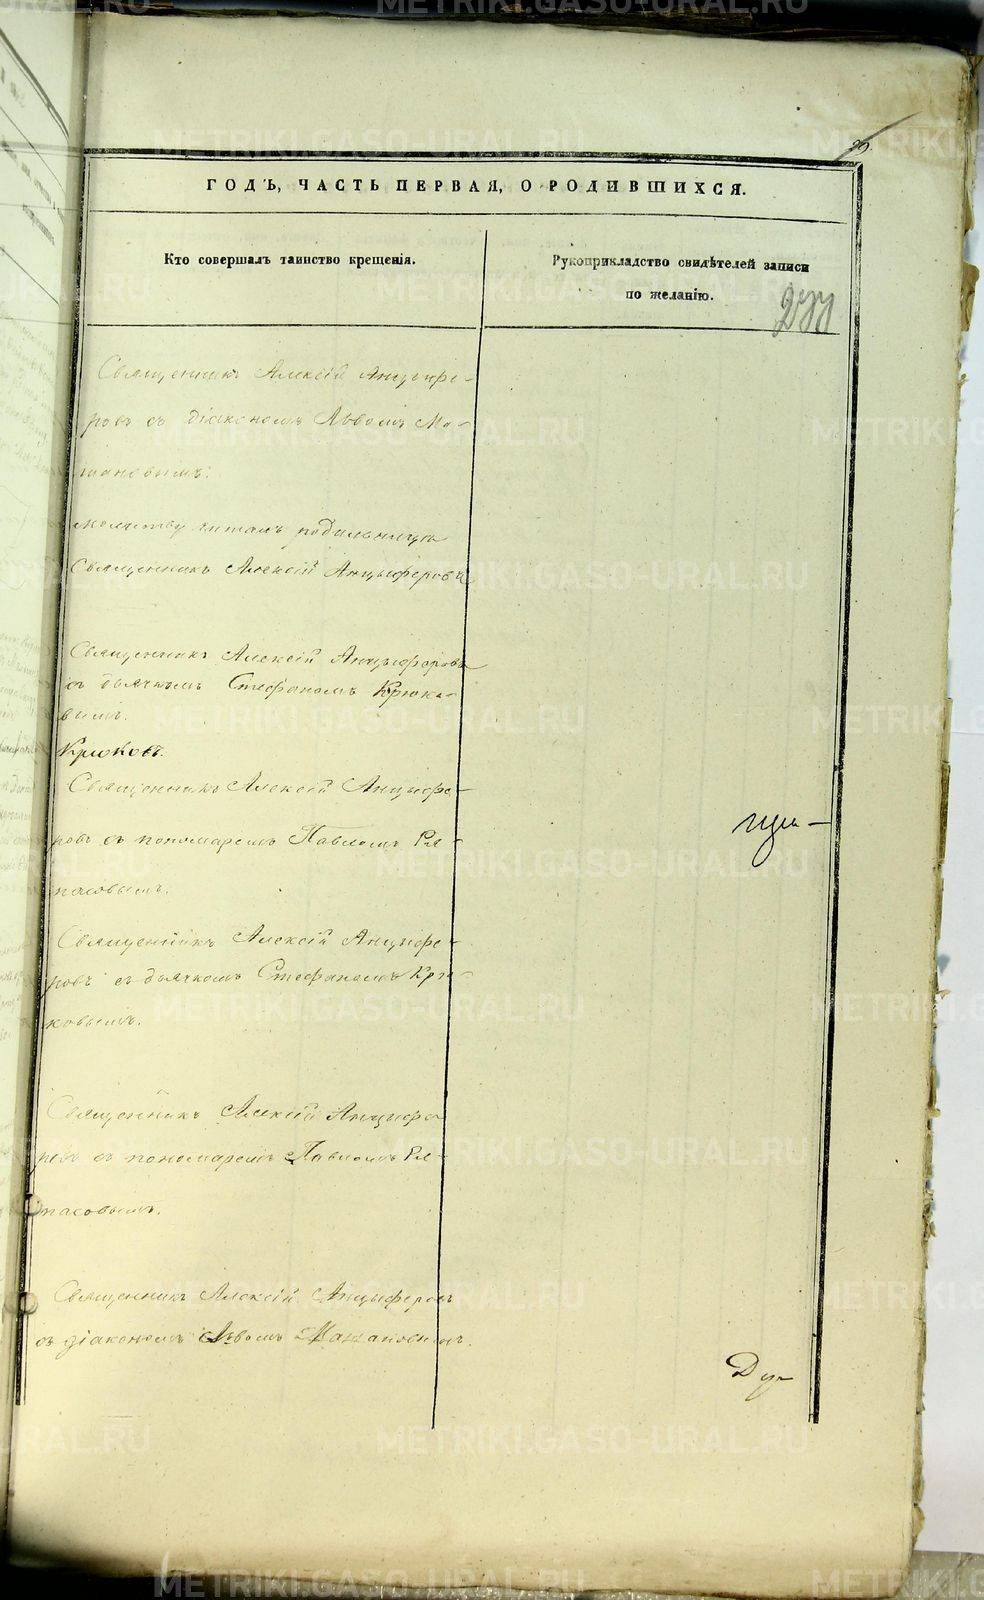 ГОДЪ, ЧАСТЬ ПЕРВАЯ, О РОДИВШИХСЯ.
Кто совершалъ таинство крещенія.
Рукоприкладство свидѣтелей записи
по желанію.
277
Священникъ Алексій Анцыфе-
ровъ съ діакономъ Львомъ Ма-
шановымъ.
молитву читалъ родильницѣ
Священникъ Алексій Анцыферовъ
Священникъ Алексій Анцыферовъ
съ дьячкомъ Стефаномъ Крюко-
вымъ.
Крюковъ.
Священникъ Алексій Анцыфе-
ровъ съ пономаремъ Павломъ
Священникъ Алексій Анцыфе-
ровъ съ дьячкомъ Стефаномъ Крю-
ковымъ.
Священникъ Алексій Анцыфе
ровъ съ пономаремъ Павломъ
Священникъ Алексій Анцыферовъ
съ діакономъ Львомъ
METRIKI.GASO-URAL.RU